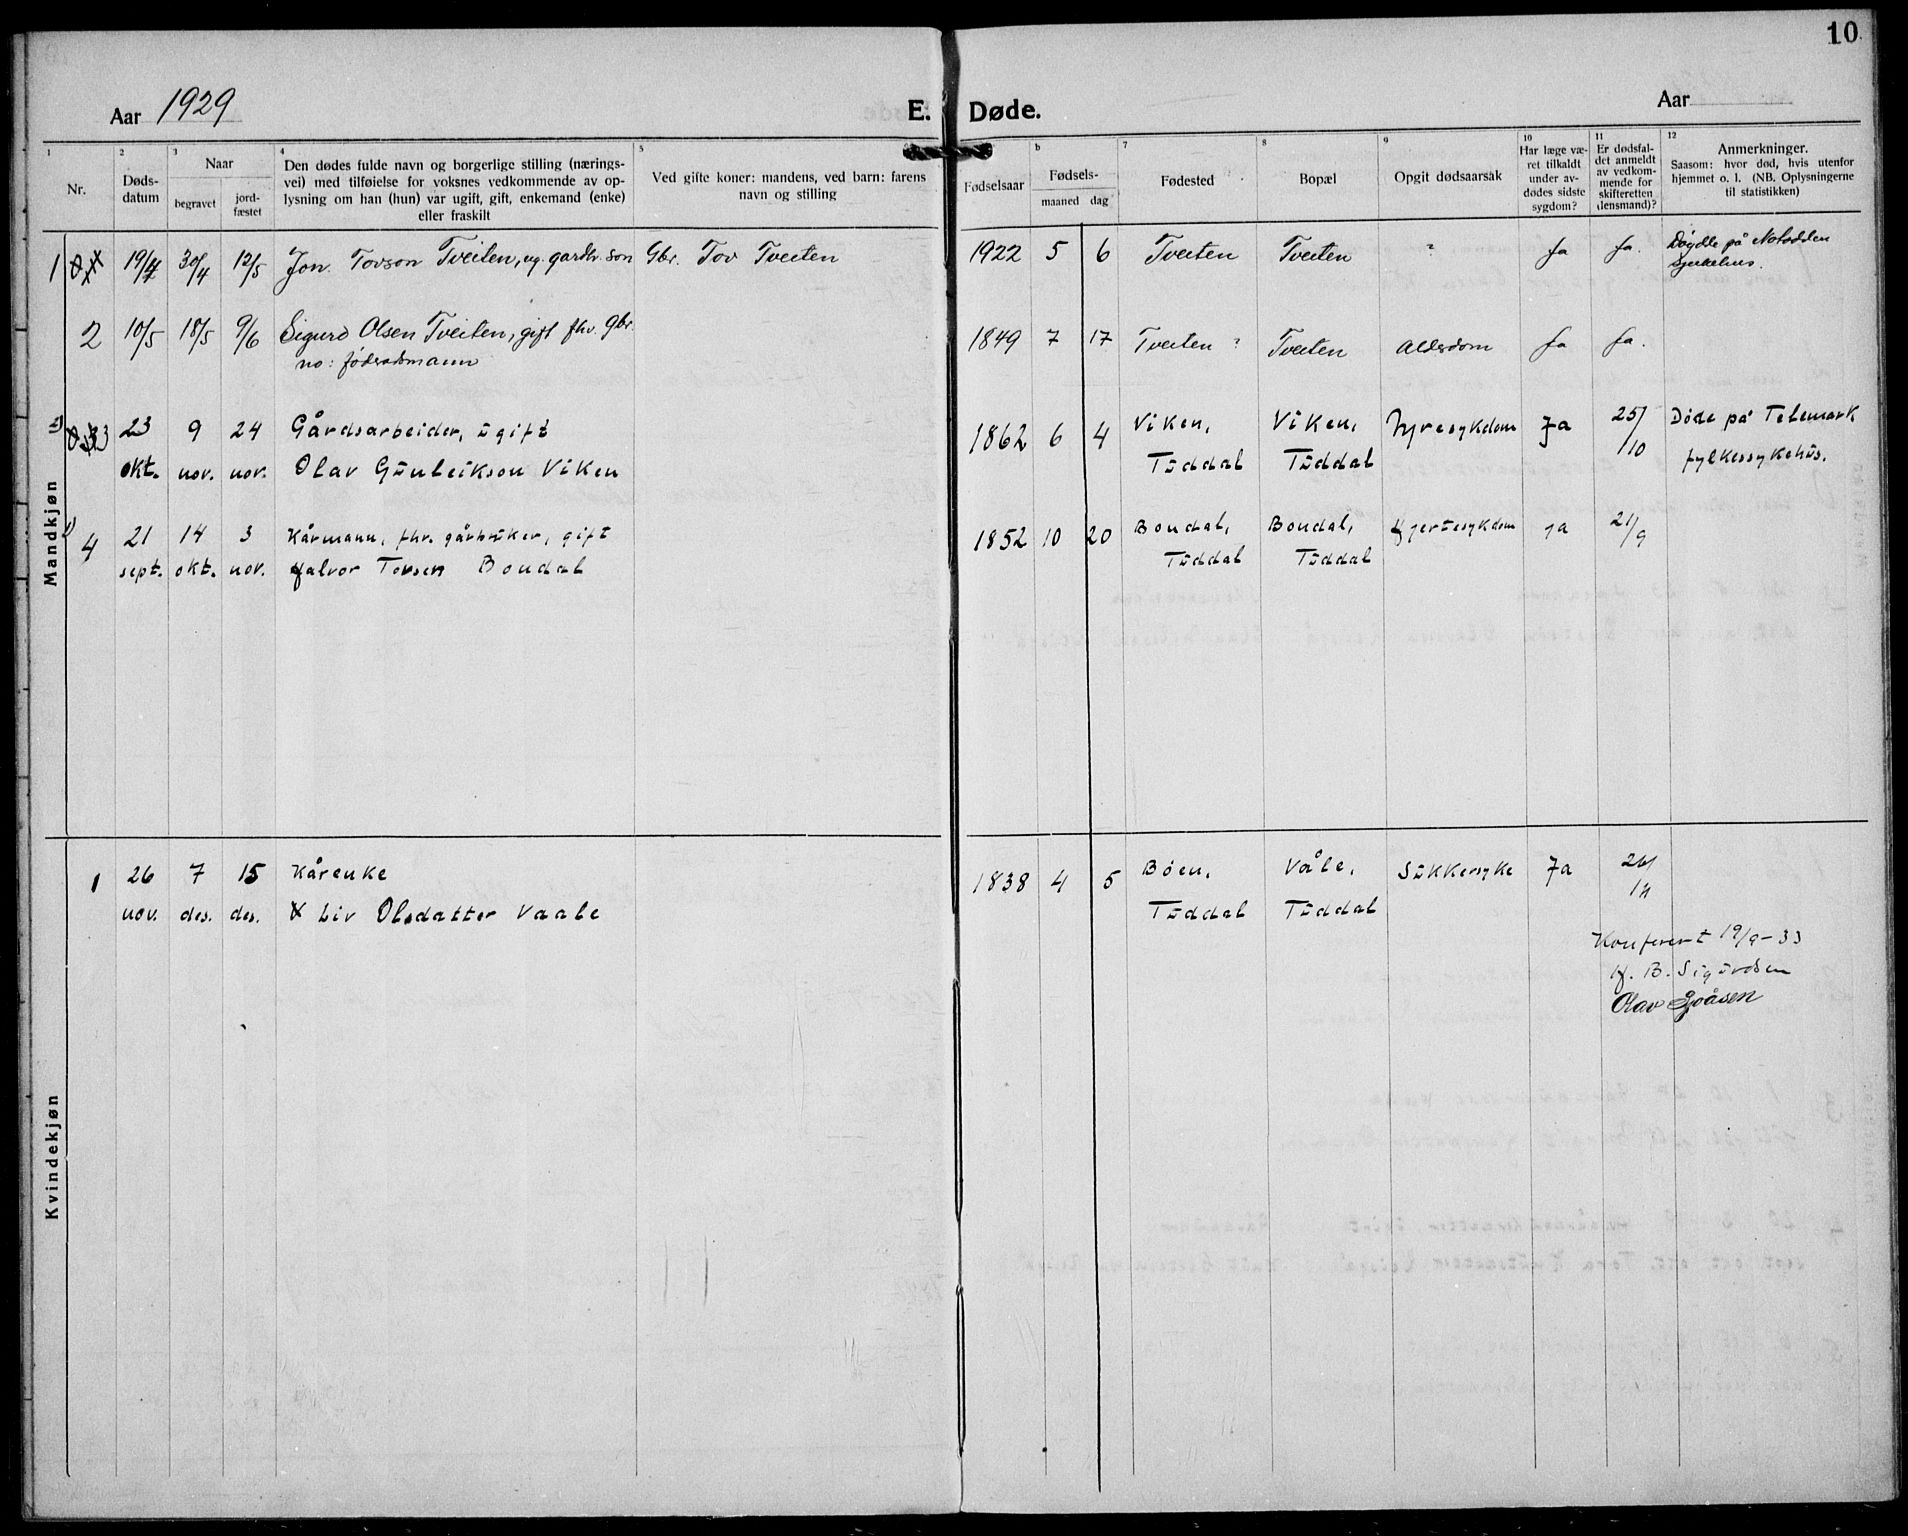 10
Aar 1929
E. Døde.
Aar
1 2 3 4 5 6 7 8 9 10 11 12
Nr.
Døds-
datum
Naar
begravet
jord-
fæstet
Den dødes fulde navn og borgerlige stilling (nærings-
vei) med tilføielse for voksnes vedkommende av op-
lysning om han (hun) var ugift, gift, enkemand (enke)
eller fraskilt
Ved gifte koner: mandens, ved barn: farens
navn og stilling
Fødselsaar
Fødsels-
maaned dag
Fødested
Bopæl
Opgit dødsaarsak
Har læge væ-
ret tilkaldt
under av-
dødes sidste
sygdom?
Er dødsfal-
det anmeldt
av vedkom-
mende for
skifteretten
(lensmand)?
Anmerkninger.
Saasom: hvor død, hvis utenfor
hjemmet o. l. (NB. Oplysningerne
til statistikken)
Mandkjøn
1 19/4 30/4 12/5 Jon Tovson Tveiten, ug. gardbr. son Gbr. Tov Tveiten 1922 5 6 Tveiten Tveiten ? ja ja. Døydde på Notodden
sjukehus.
2 10/5 18/5 9/6 Sigurd Olsen Tveiten, gift fhv. gbr. 1849 7 17 Tveiten ? Tveiten Alderdom ja ja.
no: føderådsmann
3 23 9 24 Gårdsarbeider, ugift 1862 6 4 Viken, Viken, Nyresykdom Ja 25/ Døde på Telemark
okt. nov. nov. Olav Gunleikson Viken Tuddal Tuddal /10 fylkessykehus.
4 21 14 3 Kårmann, fhv. gårbruker, gift 1852 10 20 Bondal, Bondal, Hjertesykdom ja 21/9
sept. okt. nov. Halvor Tovsen Bondal Tuddal Tuddal
Kvindekjøn
1 26 7 15 Kårenke 1838 4 5 Bøen, Våle, Sukkersyke Ja 26/
nov. des. des. Liv Olsdatter Vaale Tuddal Tuddal /11
Konferert 19/9-33
H. B. Sigurdsen
Olav